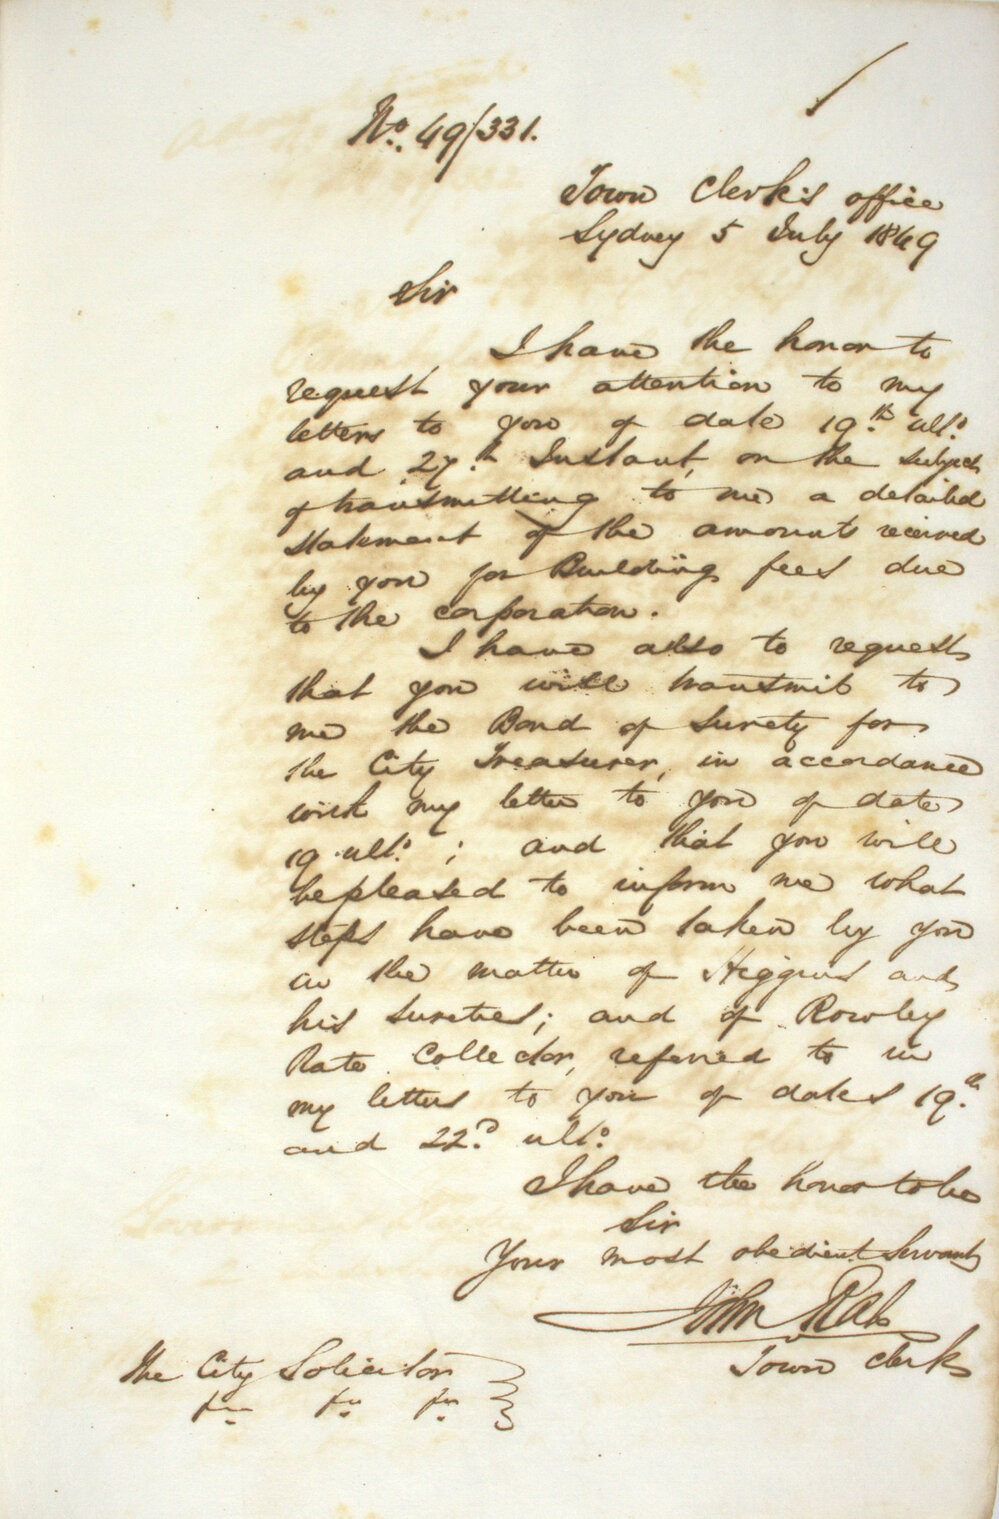 No. 49/331.
Town Clerk's office
Sydney 5 July 1849
Sir
I have the honor to
request your attention to my
letters to you of date 19th ulto
and 27th Instant, on the subject
of transmitting to me a detailed
statement of the amounts received
by you for Building fees due
to the corporation.
I have also to request
that you will transmit to
me the Bond of Surety for
the City Treasurer, in accordance
with my letter to you of date
19 ulto; and that you will
be pleased to inform me what
steps have been taken by you
in the matter of Higgins and
his sureties; and of Rowley
Rate Collector, referred to in
my letters to you of dates 19th
and 22d ulto.
I have the honor to be
Sir
Your most obedient Servant
John Rae
Town Clerk
The City Solicitor